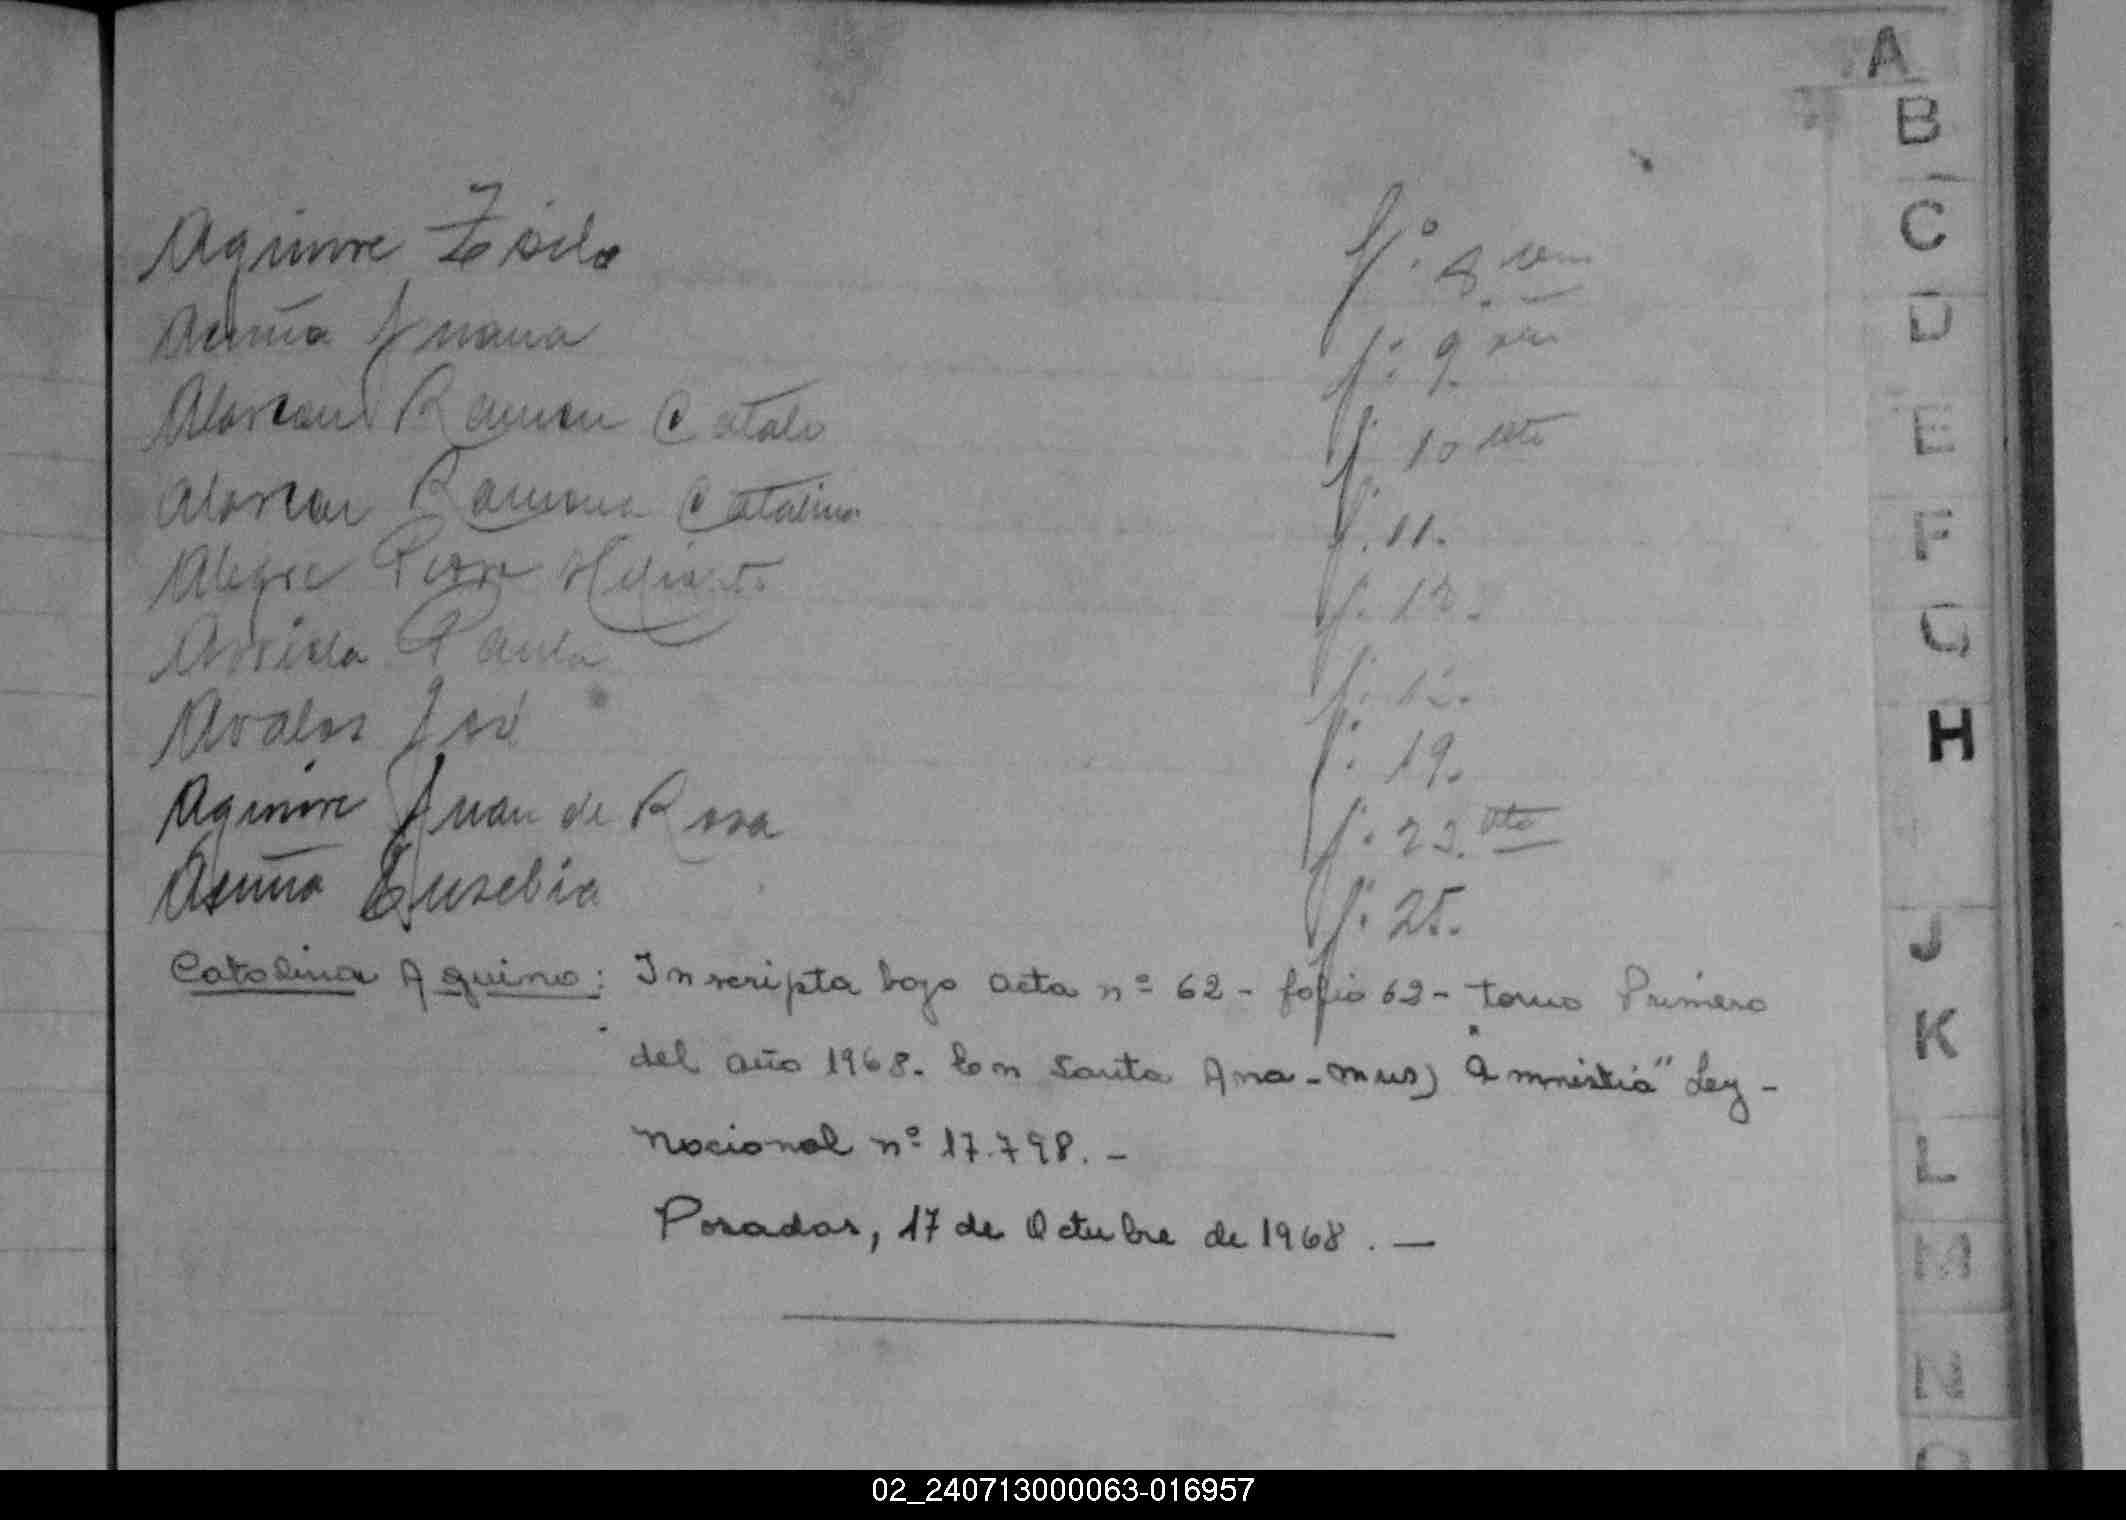 A
Aguirre Zoilo fº. 8
Acuña Juana f. 9
Alarcon Ramon Catalo f. 10 vto
Alarcon Ramona Catalina f. 11.
Alegre f. 12.
Paula f. 12.
Avalos José f. 19.
Aguirre Juan de Rosa f. 23. vto
Acuña Eusebia f. 25.
Catalina Aquino: Inscripta bajo acta nº 62 - folio 62 - tomo Primero
del año 1968. En Santa Ana - Mnes) "Amnistia" Ley -
Nacional nº 17.798. -
Posadas, 17 de Octubre de 1968. —
B
C
D
E
F
G
H
J
K
L
M
N
02_240713000063-016957